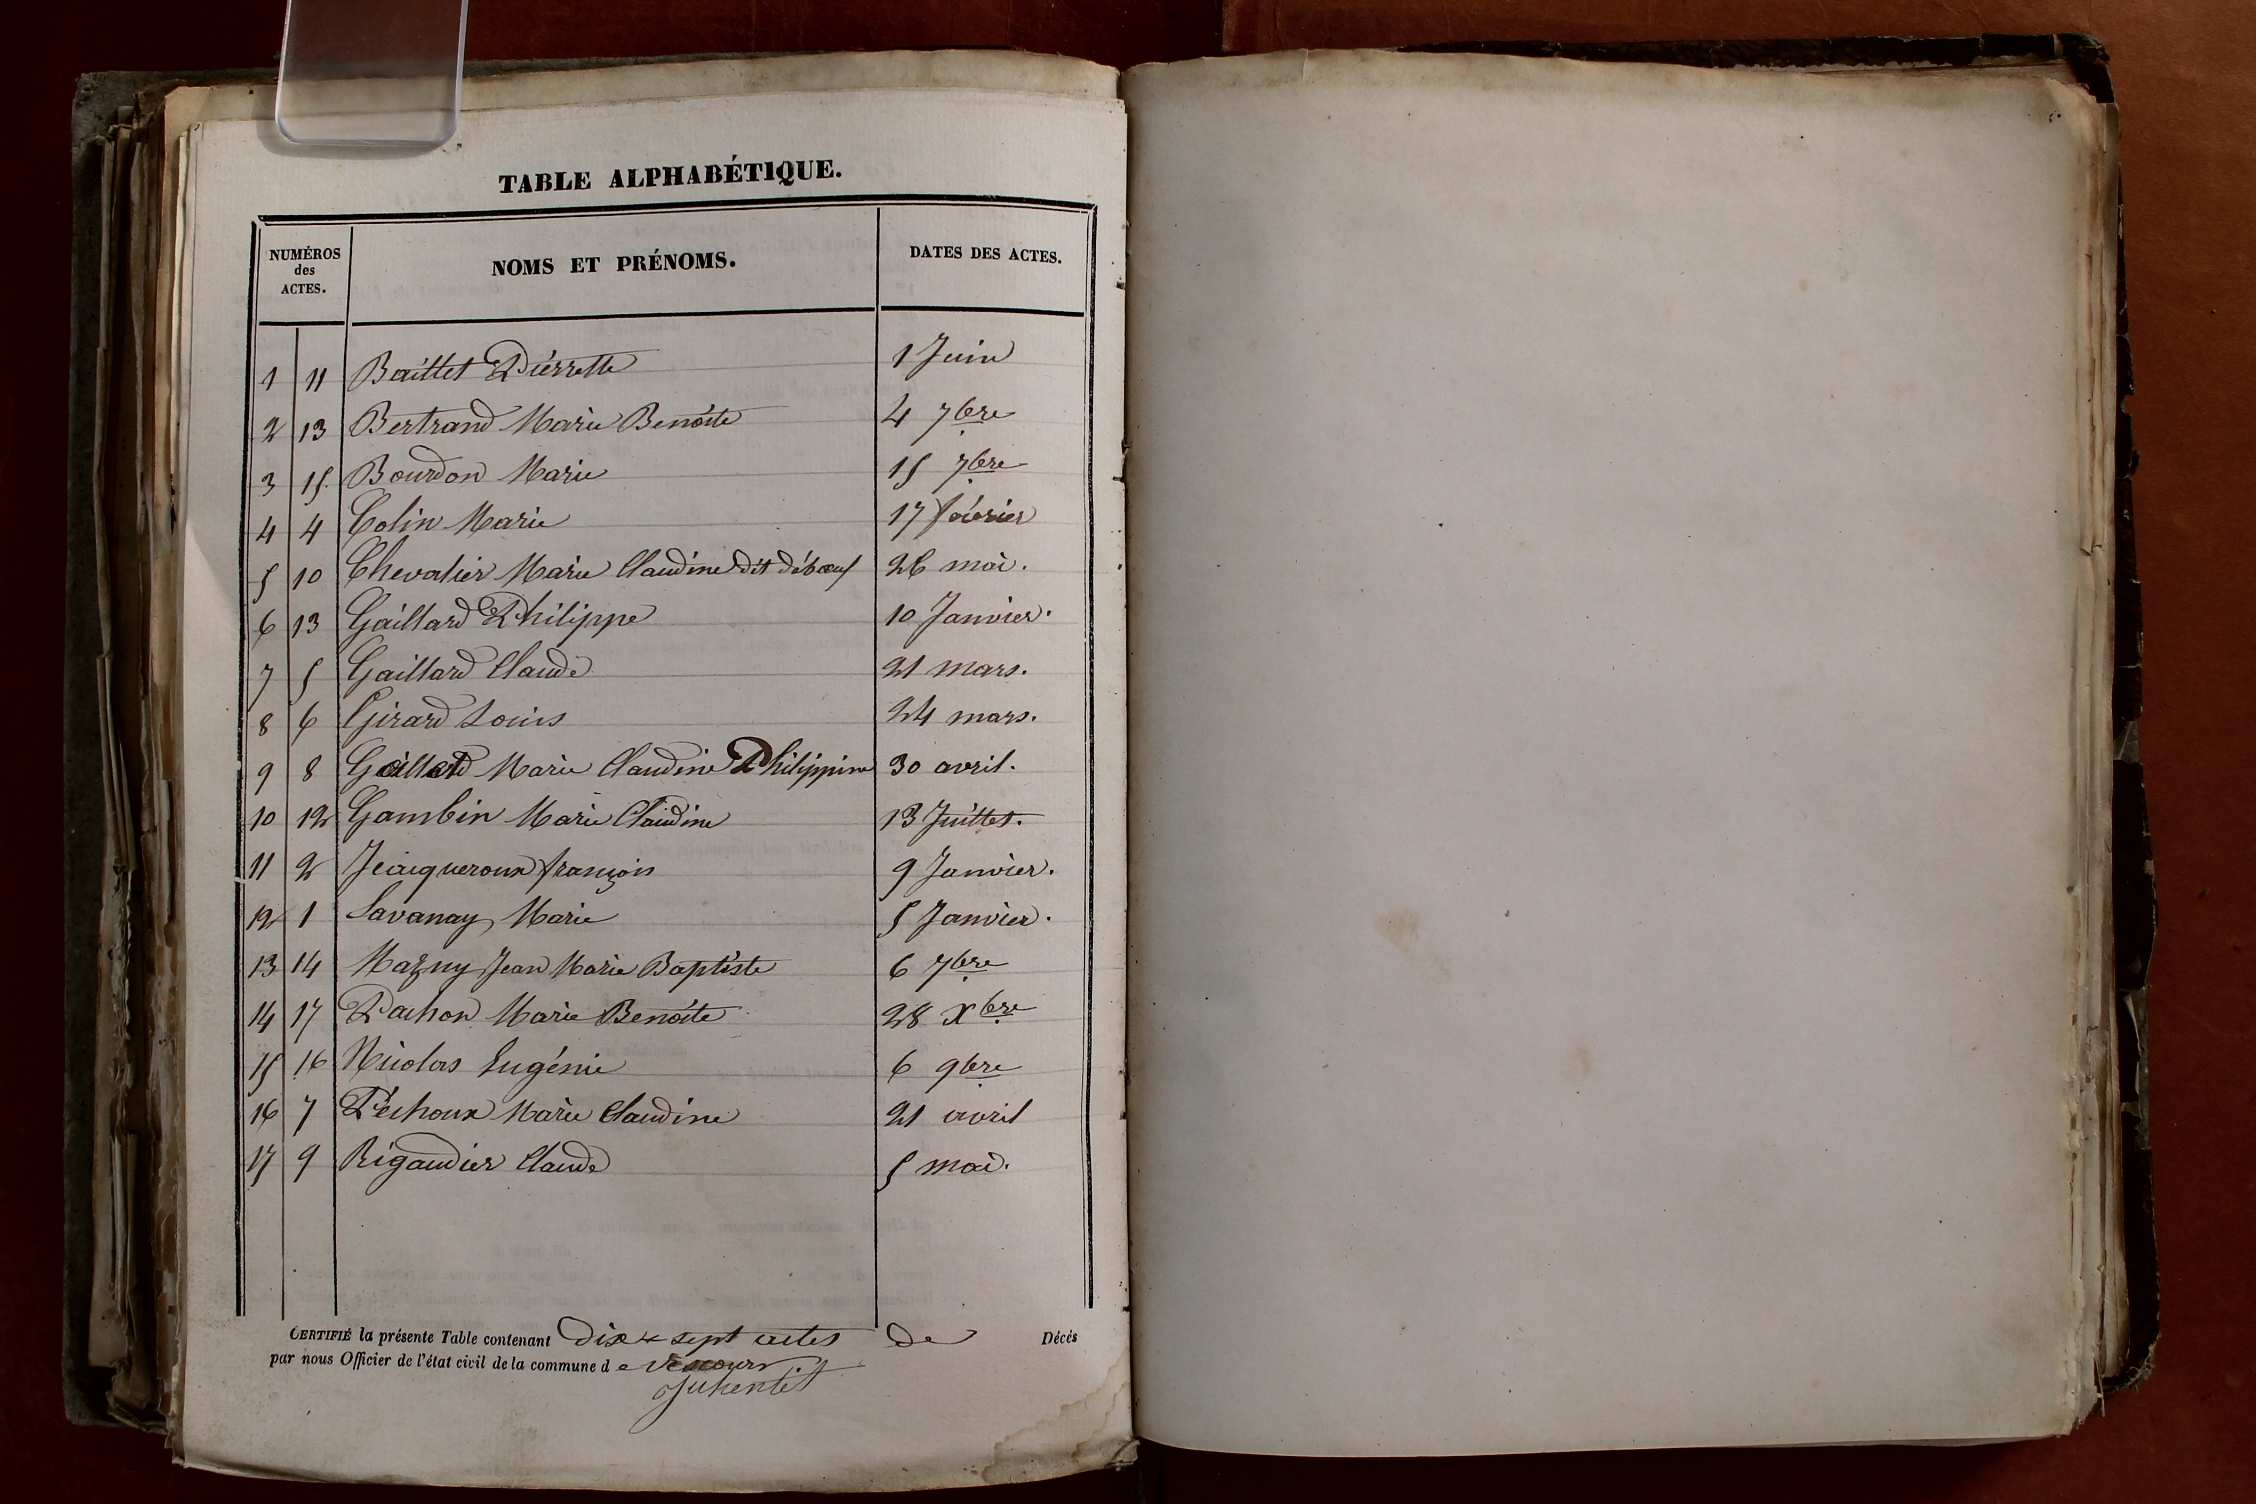 TABLE ALPHABÉTIQUE.
NUMÉROS des ACTES. NOMS ET PRÉNOMS. DATES DES ACTES.
1 11 Baillet Pierrette 1 Juin
2 13 Bertrand Marie Benoîte 4 7bre
3 15 Bourdon Marie 15 7bre
4 4 Colin Marie 17 février
5 10 Chevalier Marie Claudine dit débœuf 26 mai.
6 13 Gaillard Philippe 10 Janvier.
7 5 Gaillard Claude 21 mars.
8 6 Girard Louis 24 mars.
9 8 Gaillard Marie Claudine Philippine 30 avril.
10 12 Gambin Marie Claudine 13 Juillet.
11 2 Jeacqueroux françois 9 Janvier.
12 1 Lavanay Marie 5 Janvier.
13 14 Mazuy Jean Marie Baptiste 6 7bre
14 17 Pachon Marie Benoîte 28 Xbre
15 16 Nicolas Eugénie 6 9bre
16 7 Péchoux Marie Claudine 21 avril
17 9 Rigaudier Claude 5 mai.
CERTIFIÉ la présente Table contenant dix sept actes de Décés
par nous Officier de l'état civil de la commune de